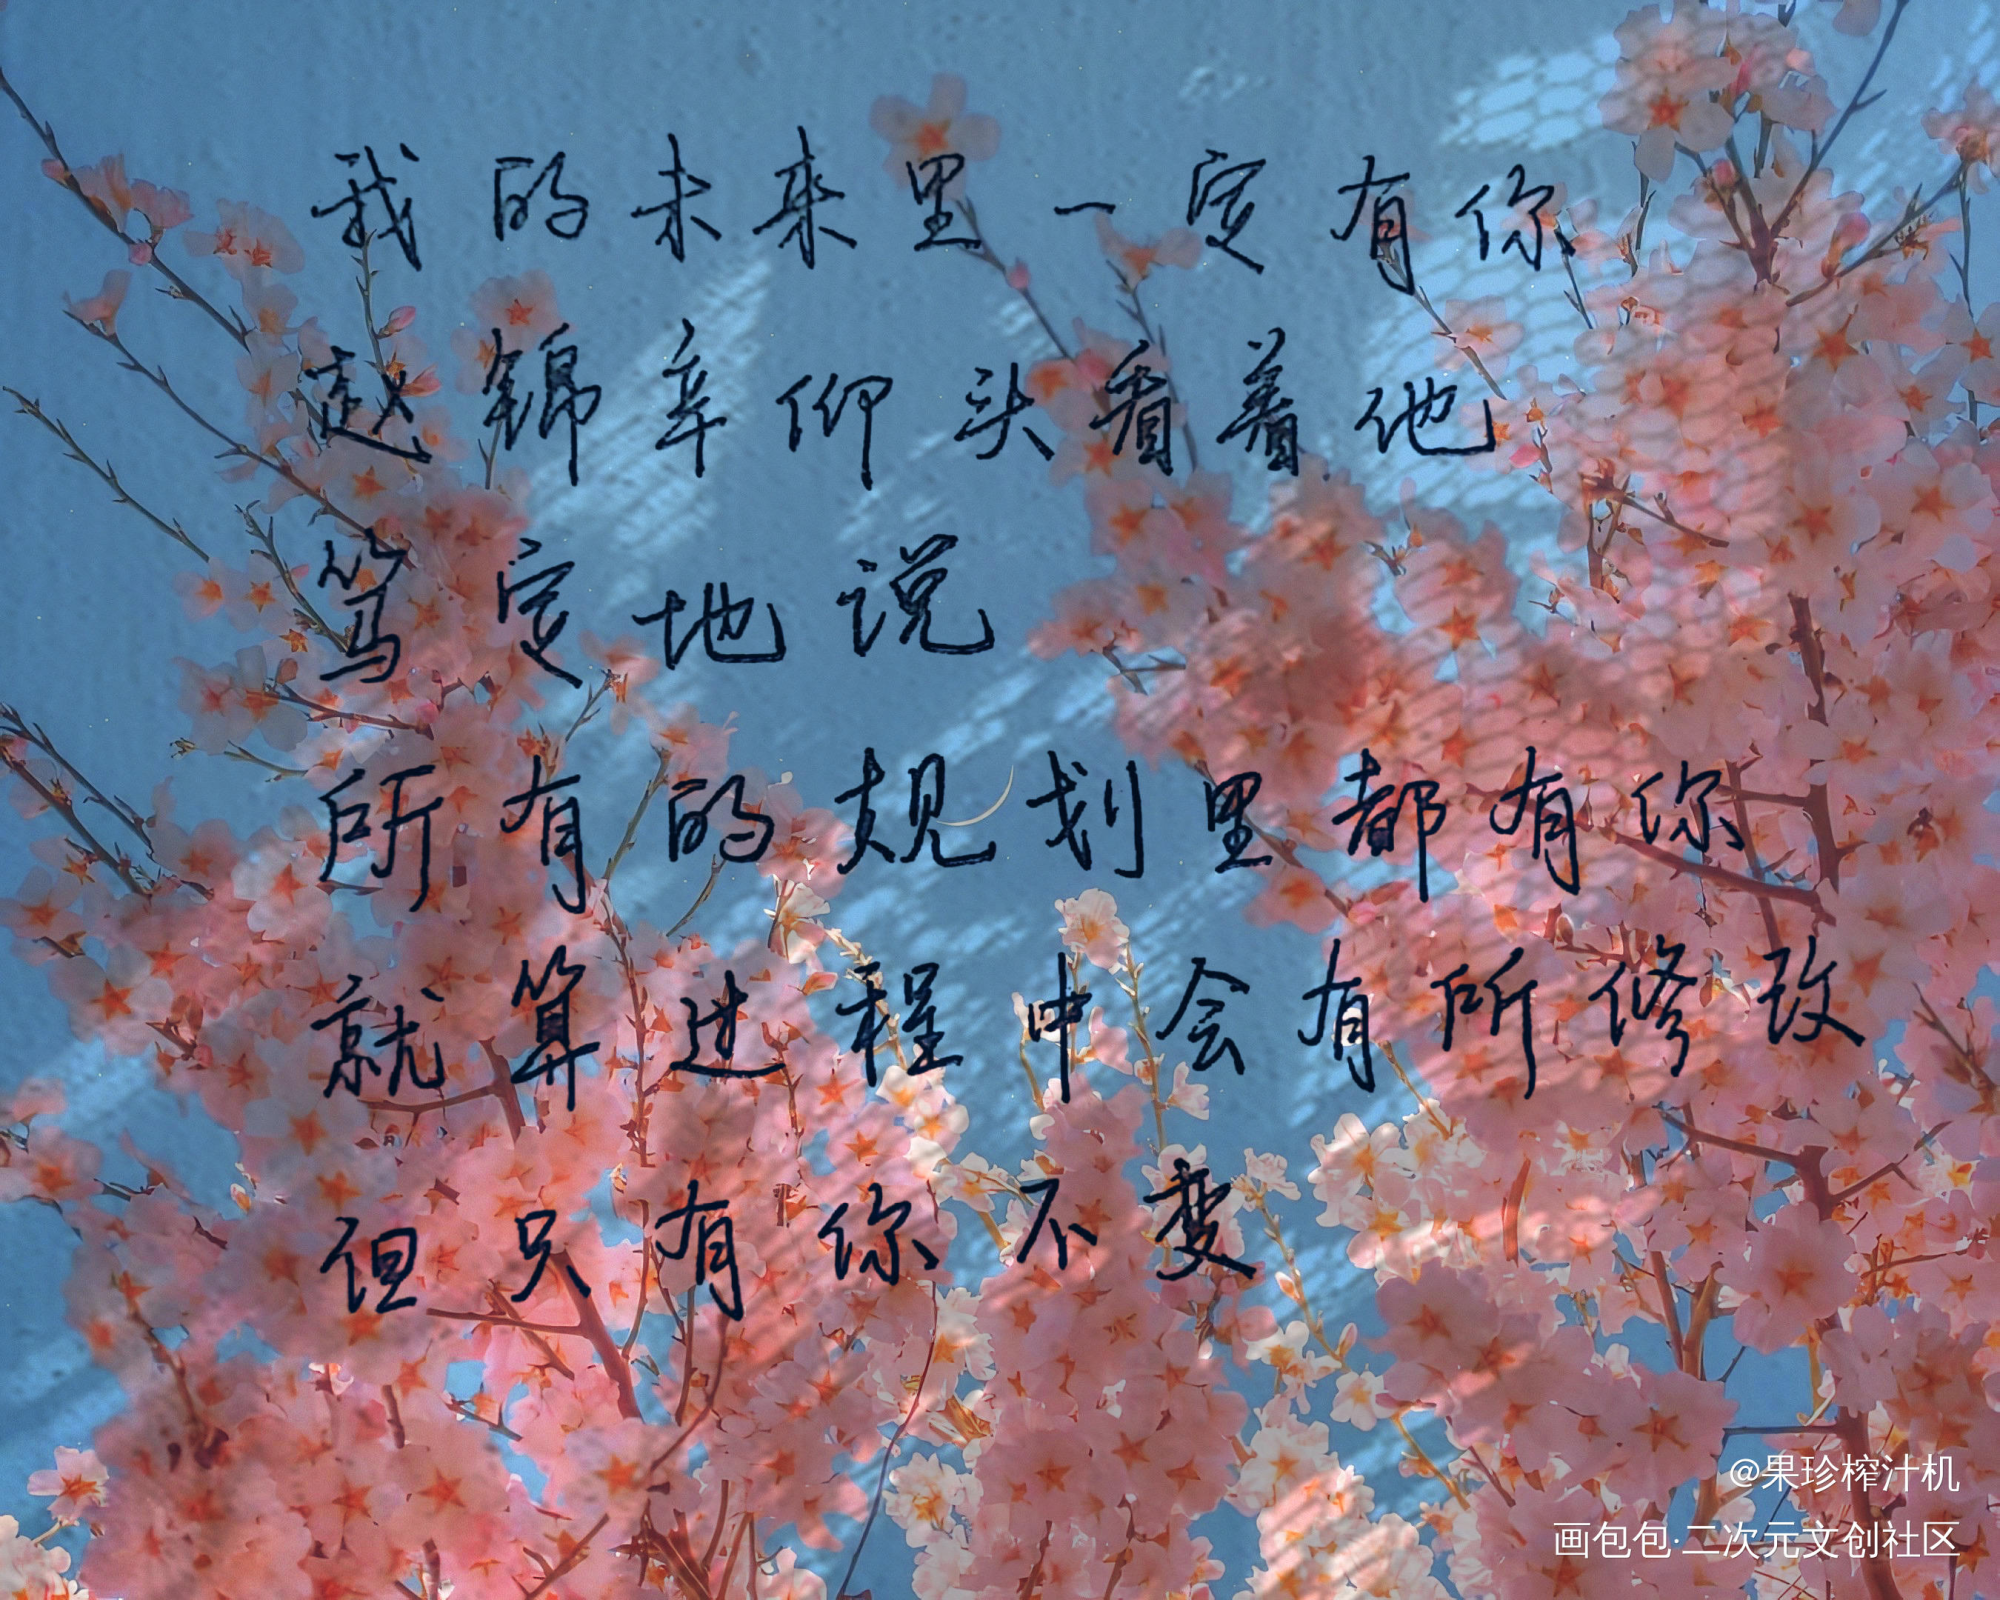 我的未来里一定有你
赵锦辛仰头看着他
笃定地说
所有的规划里都有你
就算过程中会有所修改
但只有你不变
@果珍榨汁机
画包包·二次元文创社区